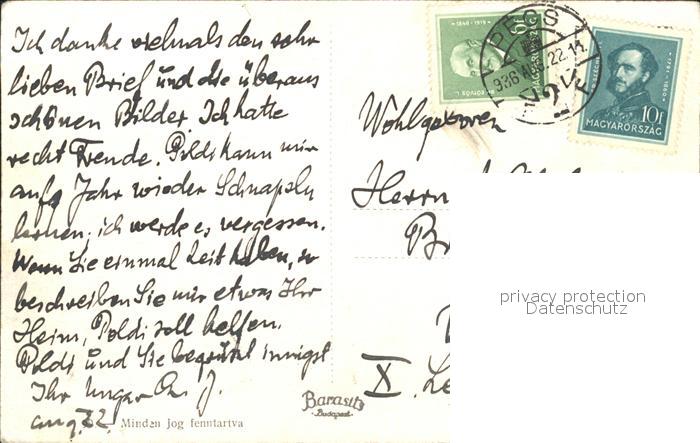 Ich danke vielmals den sehr
lieben Brief und die überaus
schönen Bilder. Ich hatte
recht Freude. Poldi kann mir
aufs Jahr wieder Schnapsln
lernen, ich werde es vergessen.
Wenn Sie einmal Zeit haben, so
beschreiben Sie mir etwas Ihr
Heim, Poldi soll helfen.
Poldi und Sie begrüsst innigst
Ihr Ungar
aug. 22.
Minden jog fenntartva
Barasits
Budapest
1848-1919
6f
MAGYARORSZÁG
PÉCS
936 AUG 22.
10f
MAGYARORSZÁG
Wohlgeboren
Herrn
X.
privacy protection
Datenschutz